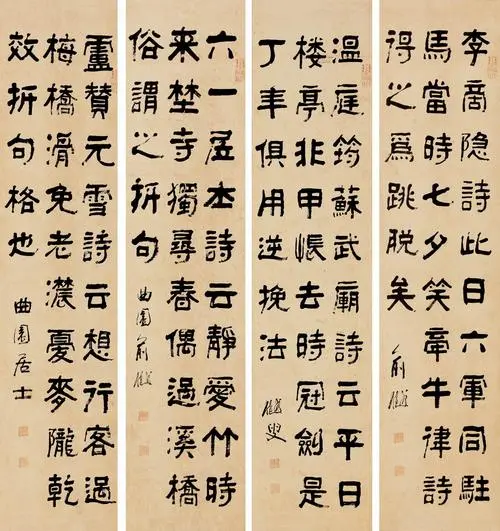 李商隐詩此日六軍同駐
馬當時七夕笑牽牛律詩
得之爲跳脱矣
俞樾
溫庭筠蘇武廟詩云平日
楼亭非甲帳去時冠劍是
丁年俱用逆挽法
樾叟
六一居士詩云靜愛竹時
来埜寺獨尋春偶過溪橋
俗謂之折句
曲園俞樾
盧贊元雪詩云想行客過
梅橋滑免老農憂麥隴乾
效折句格也
曲園居士